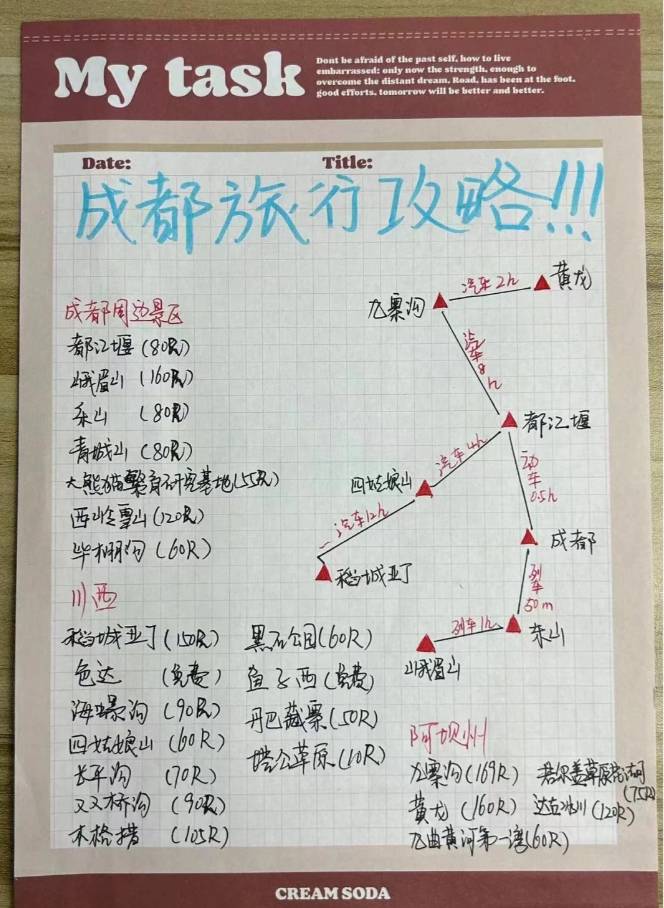 My task
Dont be afraid of the past self, how to live
embarrassed; only now the strength, enough to
overcome the distant dream, Road, has been at the foot.
good efforts, tomorrow will be better and better.
Date:
Title:
成都旅行攻略!!!
成都周边景区
都江堰 (80R)
峨眉山 (160R)
乐山 (80R)
青城山 (80R)
大熊猫繁育研究基地(55R)
西岭雪山(120R)
毕棚沟 (60R)
川西
稻城亚丁(150R)
色达 (免费)
海螺沟 (90R)
四姑娘山 (60R)
长平沟 (70R)
双桥沟 (90R)
木格措 (105R)
黑石公园(60R)
鱼子西(免费)
丹巴藏寨(50R)
塔公草原(10R)
黄龙
汽车2h
九寨沟
汽车8h
都江堰
汽车4h
四姑娘山
汽车12h
稻城亚丁
动车0.5h
成都
列车50m
乐山
列车1h
峨眉山
阿坝州
九寨沟(169R)
若尔盖草原花湖
(75R)
黄龙 (160R)
达古冰川(120R)
九曲黄河第一湾(60R)
CREAM SODA